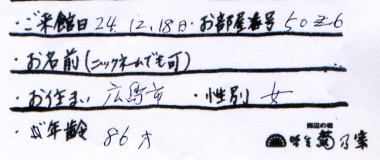 ・ご来館日 24.12.18日・お部屋番号 5026
・お名前(ニックネームでも可)
・お住まい 広島市 ・性別 女
・ご年齢 86才
海辺の宿
味庄 菊乃家